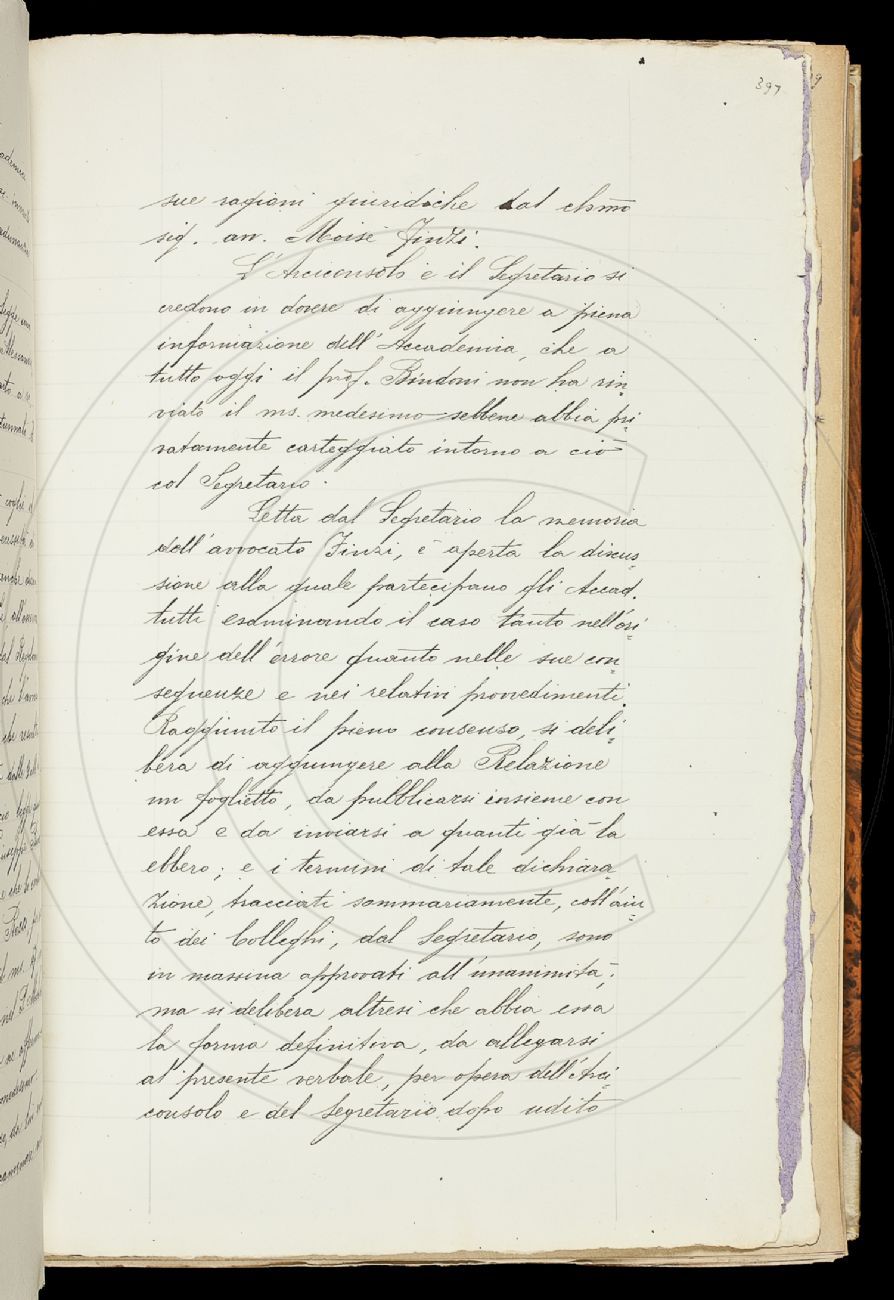 397
sue ragioni giuridiche dal ch.mo
sig. avv. Moisè Finzi.
L'Arciconsolo e il Segretario si
credono in dovere di aggiungere a piena
informazione dell'Accademia, che a
tutto oggi il prof. Bindoni non ha rin=
viato il ms. medesimo sebbene abbia pri=
vatamente carteggiato intorno a ciò
col Segretario.
Letta dal Segretario la memoria
dell'avvocato Finzi, è aperta la discus=
sione alla quale partecipano gli Accad.
tutti esaminando il caso tanto nell'ori=
gine dell'errore quanto nelle sue con=
seguenze e nei relativi provvedimenti.
Raggiunto il pieno consenso, si deli=
bera di aggiungere alla Relazione
un foglietto, da pubblicarsi insieme con
essa e da inviarsi a quanti già la
ebbero; e i termini di tale dichiara=
zione, tracciati sommariamente, coll'aiu=
to dei Colleghi, dal Segretario, sono
in massima approvati all'unanimità;
ma si delibera altresì che abbia essa
la forma definitiva, da allegarsi
al presente verbale, per opera dell'Arci=
consolo e del Segretario dopo udito